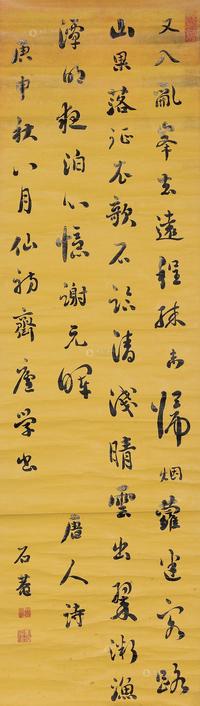 又入亂峰去遠程殊未歸烟蘿迷客路
山果落征衣歌石臨清淺晴雲出翠微漁
潭明夜泊心憶謝元暉 唐人詩
庚申秋八月仙 齋 學書 石菴